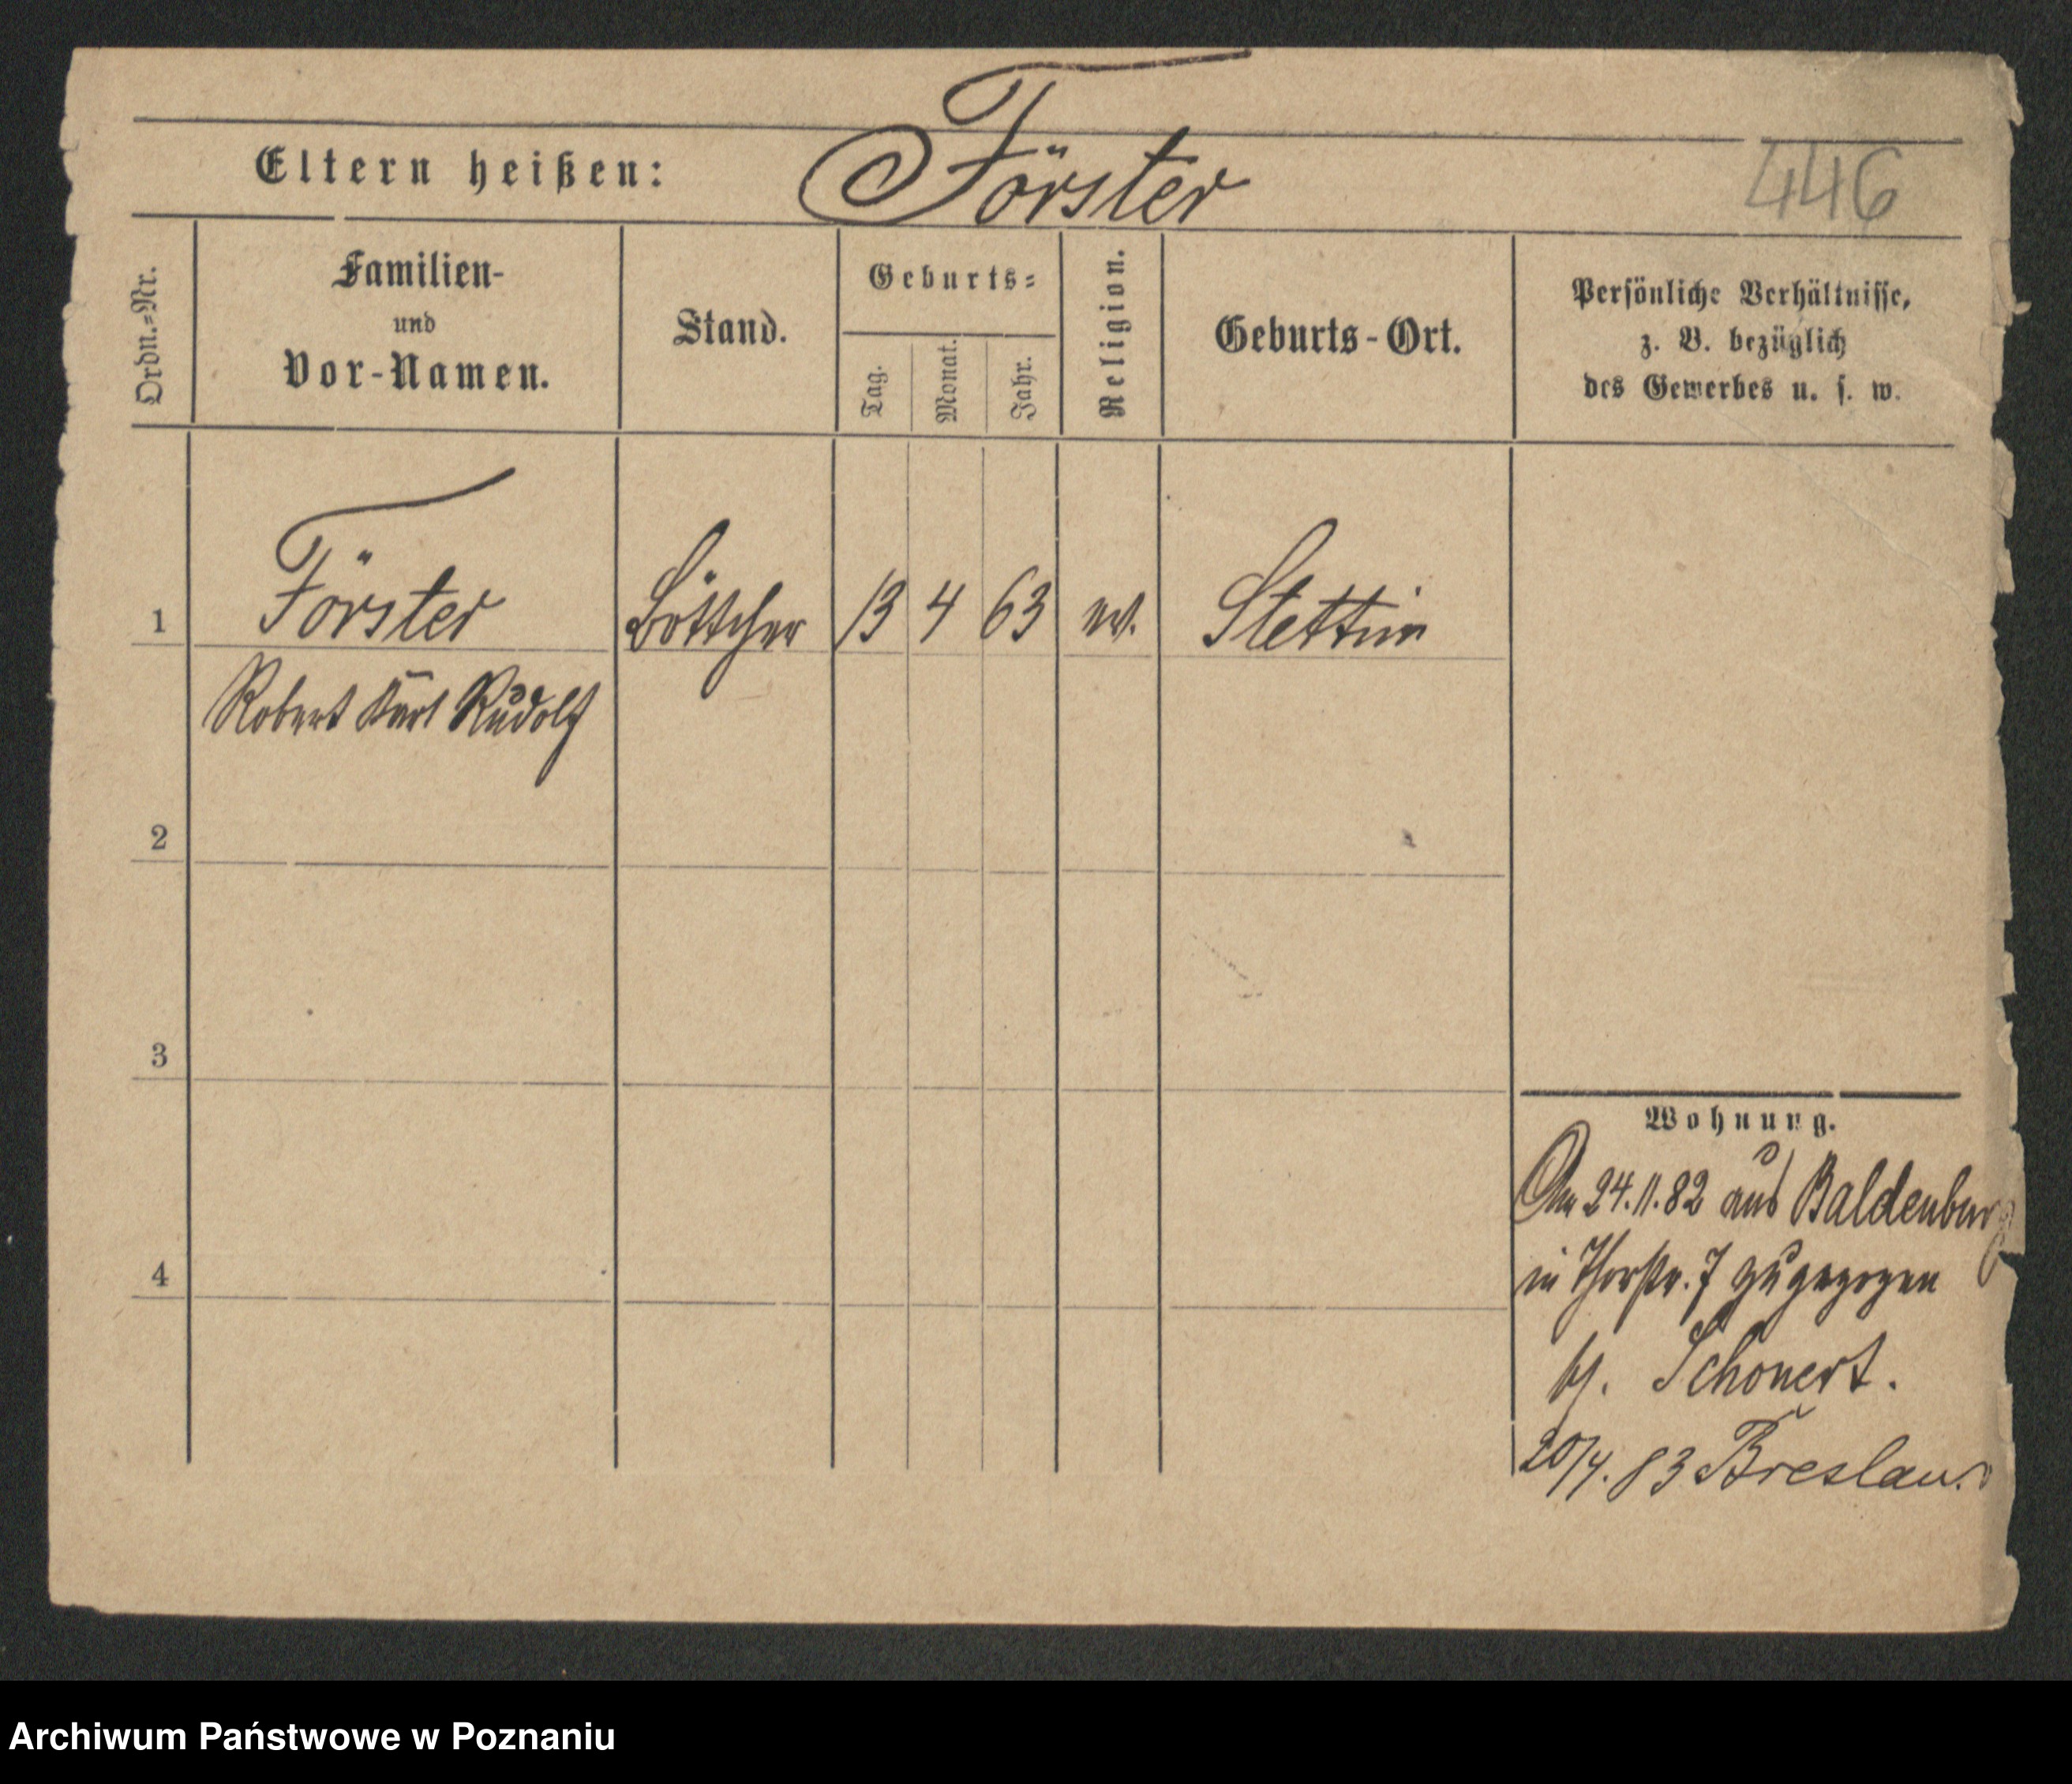 Förster
Eltern heißen:
446
Ordn.=Nr.
Familien-
und
Vor-Namen.
Stand.
Geburts=
Tag.
Monat.
Jahr.
Religion.
Geburts-Ort.
Persönliche Verhältnisse,
z. B. bezüglich
des Gewerbes u. s. w.
1 Förster Böttcher 13 4 63 ev. Stettin
Robert Karl Rudolf
2
3
4
Wohnung.
Am 24.11.82 aus Baldenburg
in Thorstr. 7 zugezogen
bj. Schonert.
20/4. 83 Breslau.
Archiwum Państwowe w Poznaniu